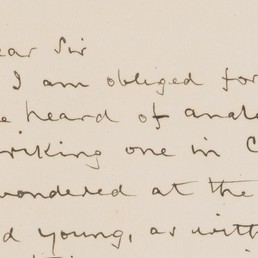 ear Sir
I am obliged for
e heard of anal
riking one in C
wondered at the
d young, as with